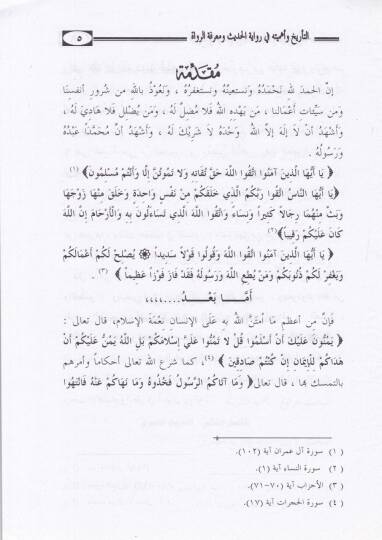 التأريخ وأهميته في رواية الحديث ومعرفة الرواة
٥
مُقَدِّمَة
إنّ الحمدَ للهِ نَحْمَدُهُ ونَستعينُهُ ونستغفرُهُ ، ونَعُوذُ باللهِ من شرورِ أنفسِنا
ومن سيِّئاتِ أعْمَالنا ، مَن يَهْدِهِ اللهُ فَلا مُضِلَّ لَهُ ، وَمَن يُضْلِل فَلا هَادِيَ لَهُ ،
وَأَشْهَدُ أنْ لا إلَهَ إلاَّ اللهُ وَحْدَهُ لا شَرِيْكَ لَهُ ، وَأَشْهَدُ أنّ مُحَمَّداً عَبْدُهُ
وَرَسُولُهُ .
﴿ يَا أَيُّهَا الَّذِينَ آمَنُوا اتَّقُوا اللَّهَ حَقَّ تُقَاتِهِ وَلَا تَمُوتُنَّ إِلَّا وَأَنْتُمْ مُسْلِمُونَ﴾ (١)
﴿يَا أَيُّهَا النَّاسُ اتَّقُوا رَبَّكُمُ الَّذِي خَلَقَكُمْ مِنْ نَفْسٍ وَاحِدَةٍ وَخَلَقَ مِنْهَا زَوْجَهَا
وَبَثَّ مِنْهُمَا رِجَالًا كَثِيراً وَنِسَاءً وَاتَّقُوا اللَّهَ الَّذِي تَسَاءَلُونَ بِهِ وَالْأَرْحَامَ إِنَّ اللَّهَ
كَانَ عَلَيْكُمْ رَقِيباً﴾(٢)
﴿ يَا أَيُّهَا الَّذِينَ آمَنُوا اتَّقُوا اللَّهَ وَقُولُوا قَوْلًا سَدِيداً ۞ يُصْلِحْ لَكُمْ أَعْمَالَكُمْ
وَيَغْفِرْ لَكُمْ ذُنُوبَكُمْ وَمَنْ يُطِعِ اللَّهَ وَرَسُولَهُ فَقَدْ فَازَ فَوْزاً عَظِيماً ﴾ (٣) .
أَمَّا بَعْدُ......،،،،
فَإنَّ من أعظم مَا امْتَنَّ اللهُ بِهِ عَلَى الإنسانِ نِعْمَةَ الإسلام، قال تعالى :
﴿ يَمُنُّونَ عَلَيْكَ أَنْ أَسْلَمُوا قُلْ لَا تَمُنُّوا عَلَيَّ إِسْلَامَكُمْ بَلِ اللَّهُ يَمُنُّ عَلَيْكُمْ أَنْ
هَدَاكُمْ لِلْإِيمَانِ إِنْ كُنْتُمْ صَادِقِينَ﴾ (٤)، كما شرع الله تعالى أحكاماً وأمرهم
بالتمسك بها ، قال تعالى﴿ وَمَا آتَاكُمُ الرَّسُولُ فَخُذُوهُ وَمَا نَهَاكُمْ عَنْهُ فَانْتَهُوا
(١) سورة آل عمران آية (١٠٢).
(٢) سورة النساء آية (١).
(٣) الأحزاب آية (٧٠-٧١).
(٤) سورة الحجرات آية (١٧).